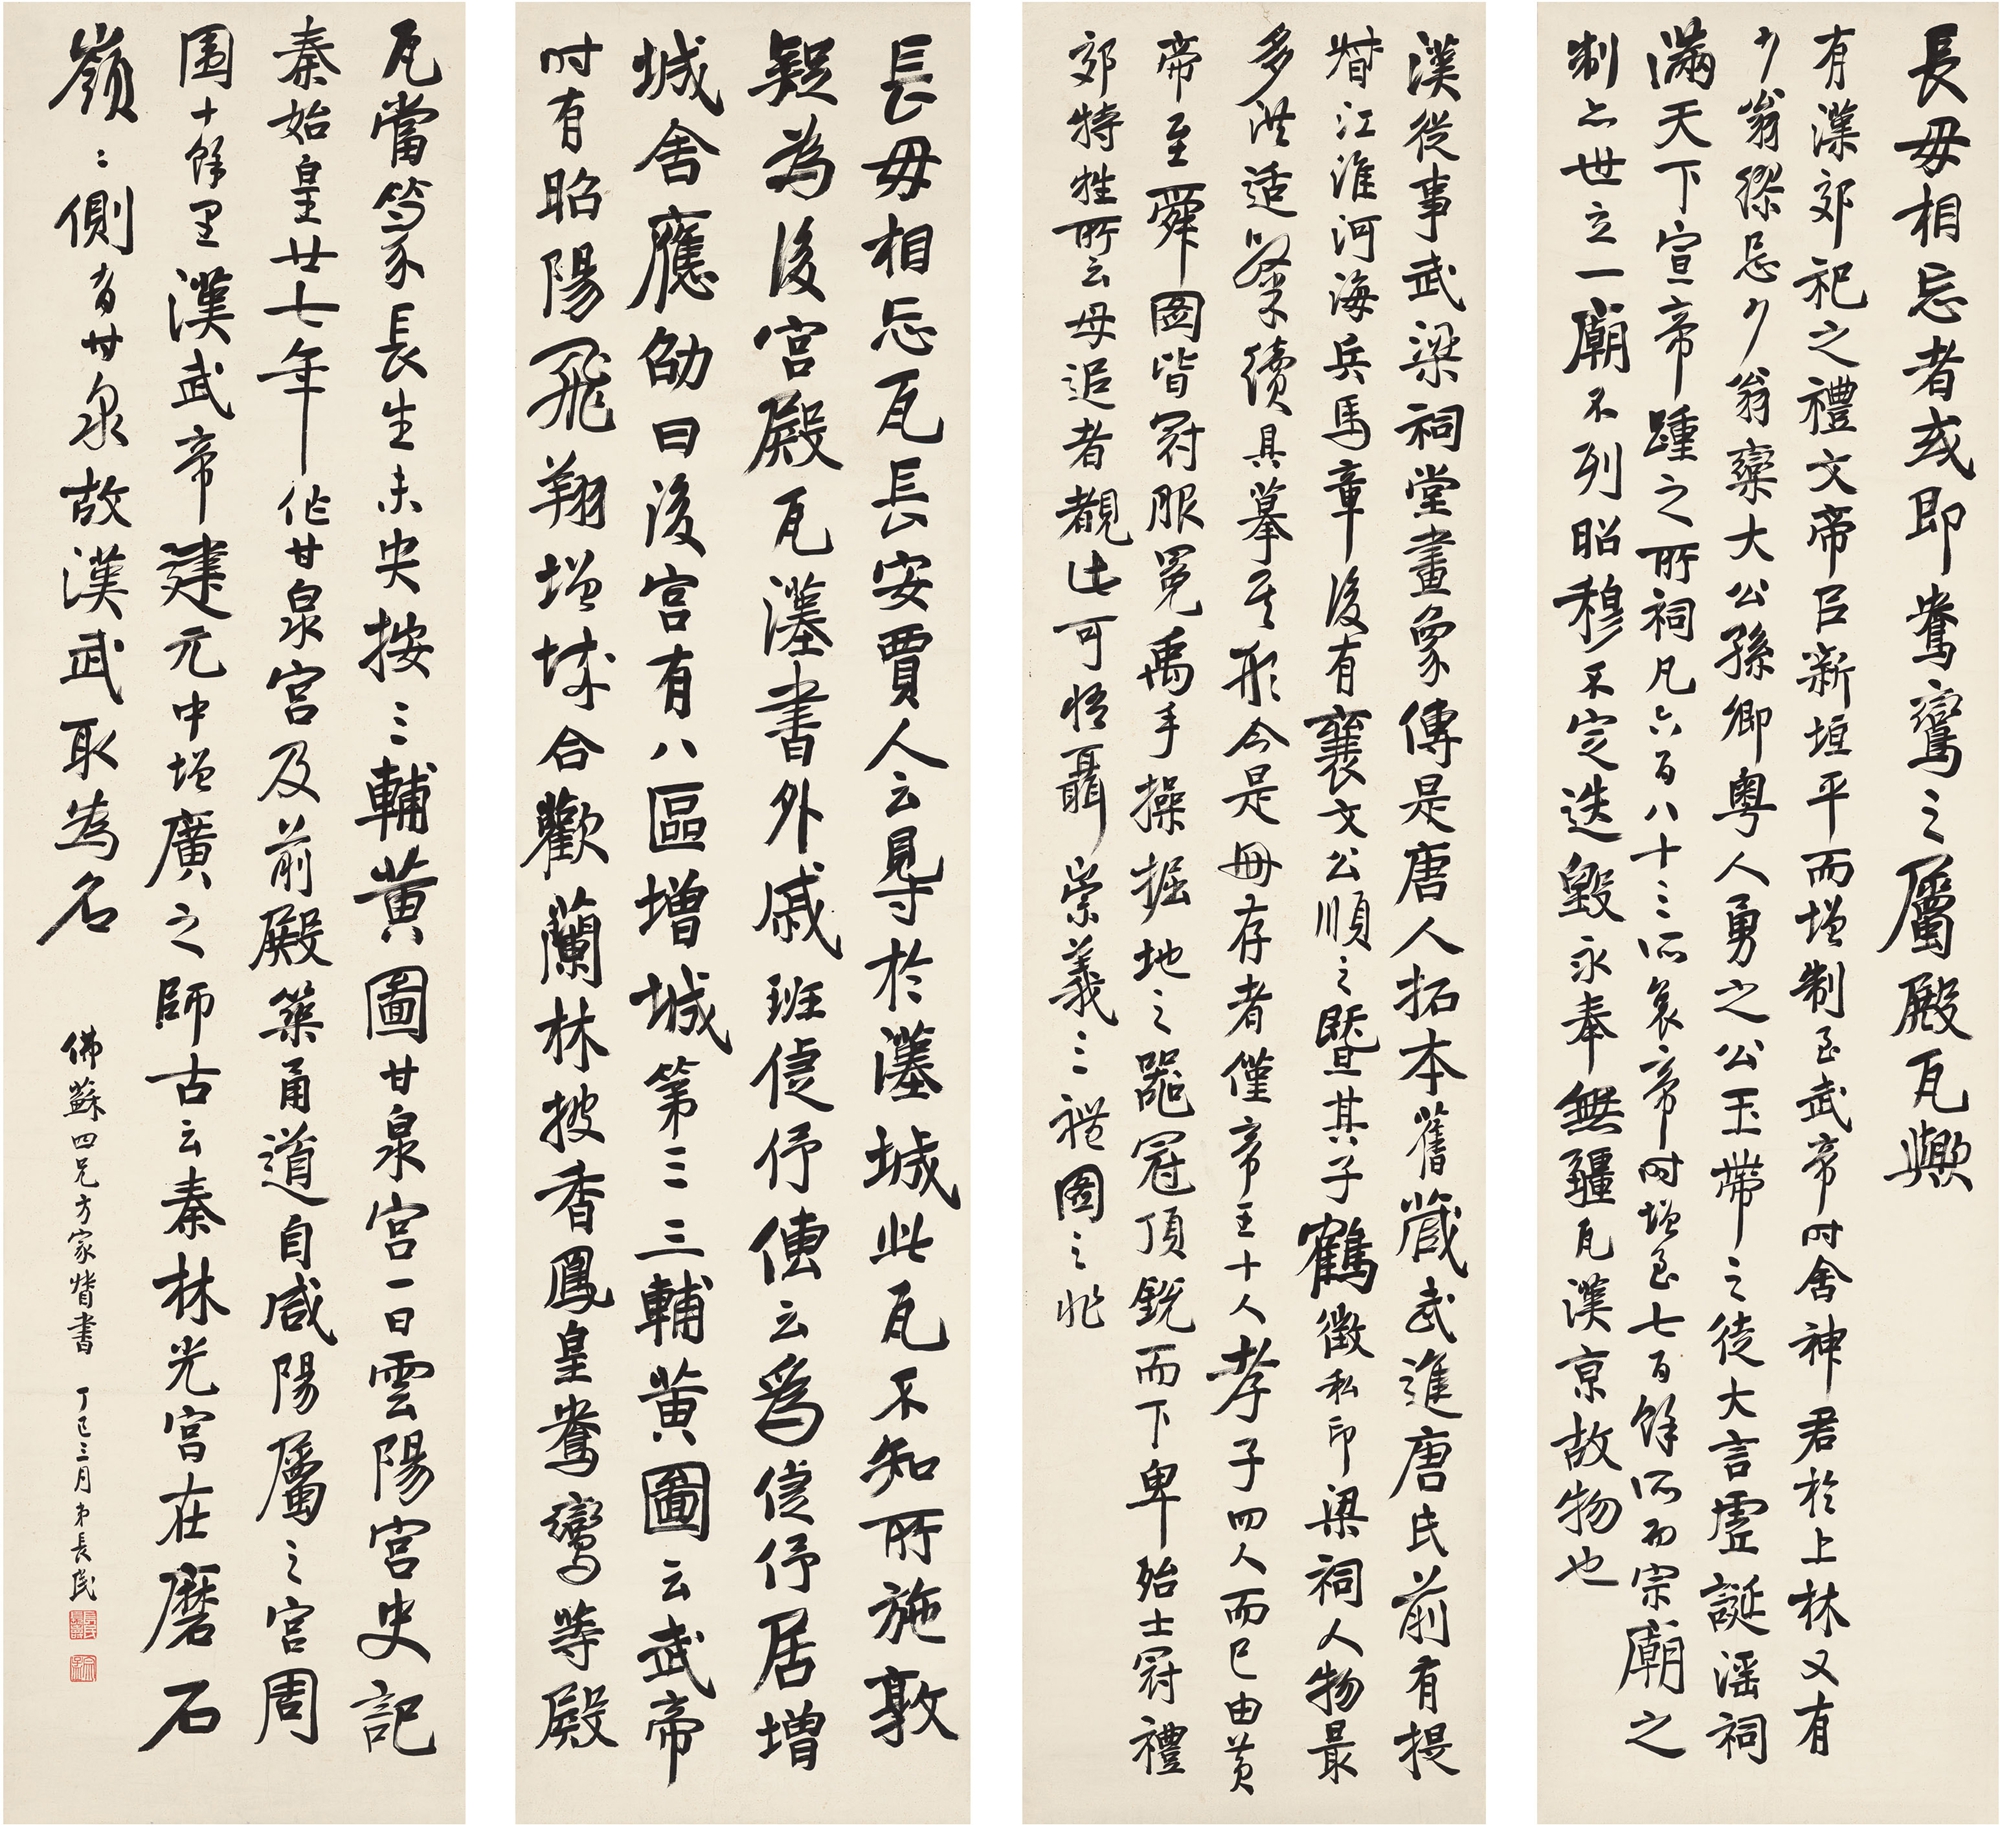 長毋相忘者或即鴦鸞之屬殿瓦歟
有漢郊祀之禮文帝臣新垣平而增制至武帝時舍神君於上林又有
少翁繆忌少翁欒大公孫卿粵人勇之公玉帶之徒大言虛誕淫祠
滿天下宣帝踵之所祠凡六百八十三所哀帝時增至七百餘所而宗廟之
制亦世立一廟不列昭穆不定迭毀永奉無疆瓦漢京故物也
漢從事武梁祠堂畫象傳是唐人拓本舊藏武進唐氏前有提
督江淮河海兵馬章後有襄文公順之暨其子鶴徵私印梁祠人物最
多洪适隸續具摹其形今是冊存者僅帝王十人孝子四人而已由黃
帝至舜圖皆冠服冕禹手操掘地之器冠頂銳而下卑殆士冠禮
郊特牲所云毋追者觀此可悟聶崇義三禮圖之非
長毋相忘瓦長安賈人云見得於漢城此瓦不知所施敦
疑為後宮殿瓦漢書外戚班倢伃傳云為倢伃居增
城舍應劭曰後宮有八區增城第三三輔黃圖云武帝
時有昭陽飛翔增城合歡蘭林披香鳳皇鴦鸞等殿
瓦當篆長生未央按三輔黃圖甘泉宮一曰雲陽宮史記
秦始皇廿七年作甘泉宮及前殿築甬道自咸陽屬之宮周
圍十餘里漢武帝建元中增廣之師古云秦林光宮在磨石
嶺嶺側有甘泉故漢武取為名
佛蘇四兄方家督書 丁巳三月弟長民